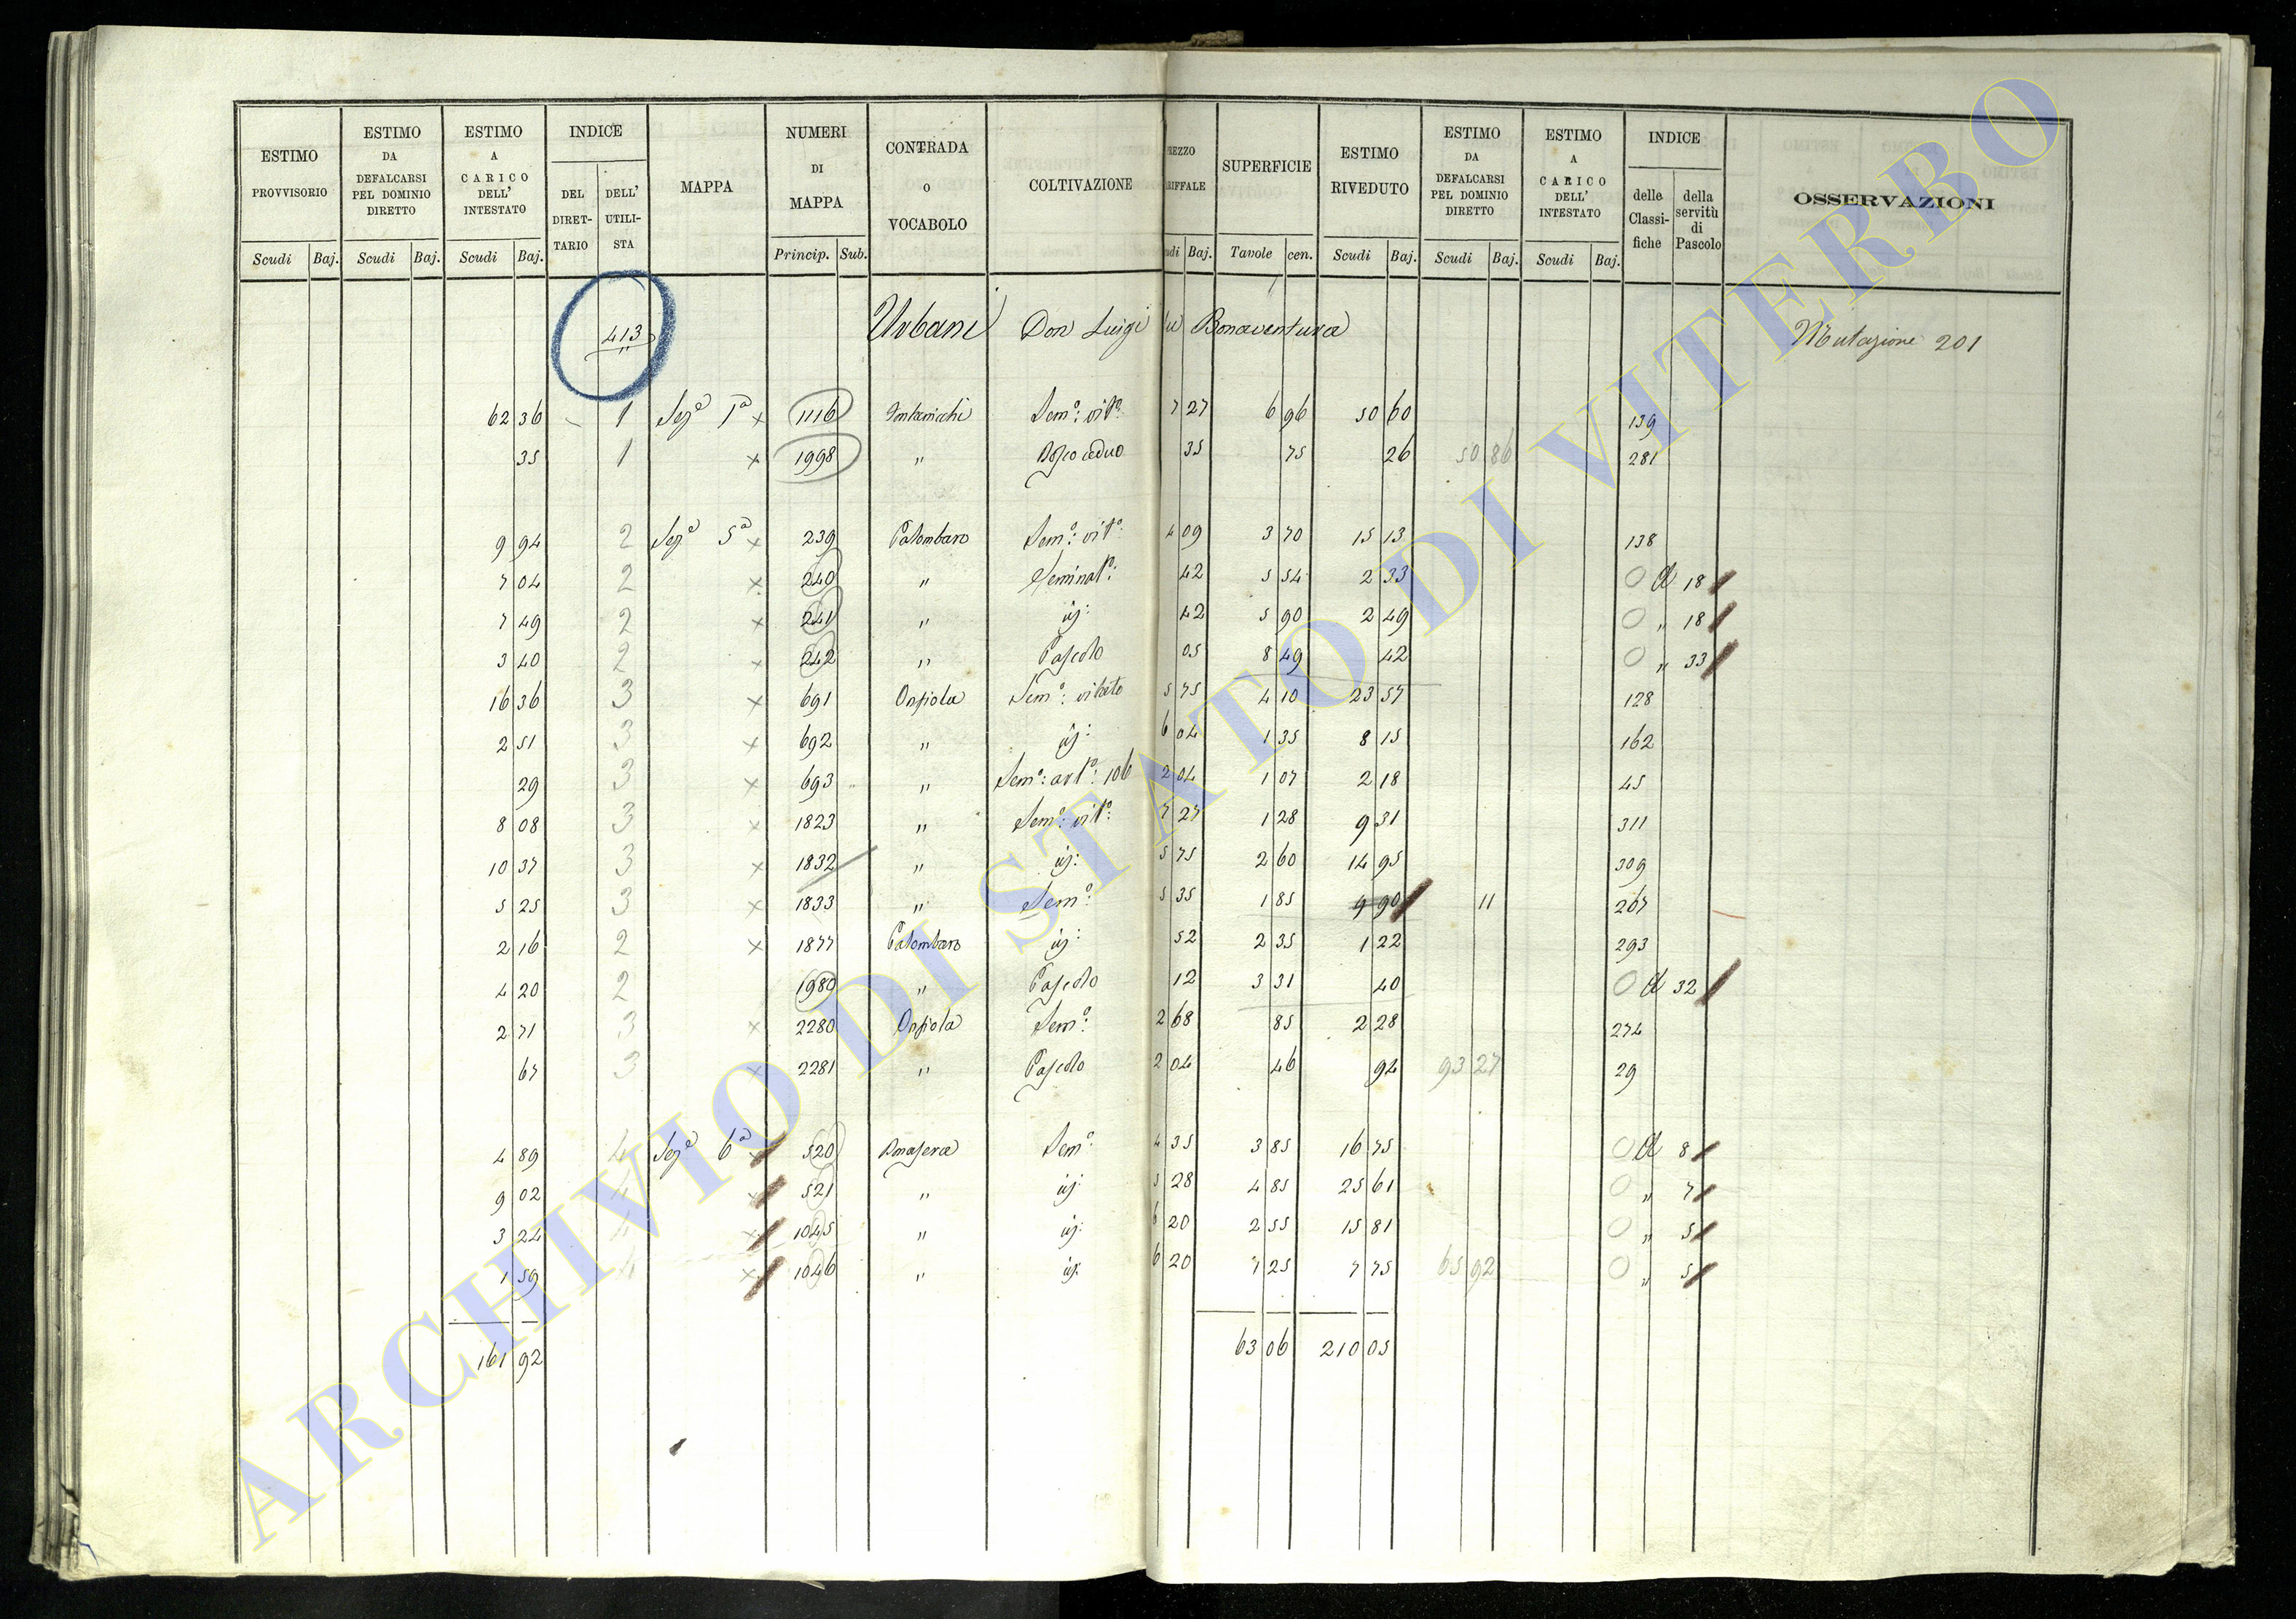 ESTIMO PROVVISORIO Scudi Baj. | ESTIMO DA DEFALCARSI PEL DOMINIO DIRETTO Scudi Baj. | ESTIMO A CARICO DELL' INTESTATO Scudi Baj. | INDICE DEL DIRET-TARIO | DELL' UTILI-STA | MAPPA | NUMERI DI MAPPA Princip. Sub. | CONTRADA O VOCABOLO | COLTIVAZIONE | REZZO ARIFFALE udi Baj. | SUPERFICIE Tavole cen. | ESTIMO RIVEDUTO Scudi Baj. | ESTIMO DA DEFALCARSI PEL DOMINIO DIRETTO Scudi Baj. | ESTIMO A CARICO DELL' INTESTATO Scudi Baj. | INDICE delle Classi-fiche | della servitù di Pascolo | OSSERVAZIONI
413 Urbani Don Luigi fu Bonaventura Mutazione 201
62 36 1 Sez.e 1a x 1116 Sem.o: vit.o 7 27 6 96 50 60 139
35 1 x 1998 " Bosco ceduo 35 75 26 50 86 281
9 94 2 Sez.e 5a x 239 Palombaro Sem.o: vit.o: 4 09 3 70 15 13 138
7 04 2 x 240 " Seminat.o: 42 5 54 2 33 0 A 18
7 49 2 x 241 " id: 42 5 90 2 49 0 " 18
3 40 2 x 242 " Pascolo 05 8 49 42 0 " 33
16 36 3 x 691 Sem.o: vitato 5 75 4 10 23 57 128
2 51 3 x 692 " id: 6 04 1 35 8 15 162
29 3 x 693 " Sem.o: art.o: 106 2 04 1 07 2 18 45
8 08 3 x 1823 " Sem.o: vit.o: 7 27 1 28 9 31 311
10 37 3 x 1832 " id: 5 75 2 60 14 95 309
5 25 3 x 1833 " Sem.o 5 35 1 85 9 90 " 267
2 16 2 x 1877 Palombaro id: 52 2 35 1 22 293
4 20 2 1980 " Pascolo 12 3 31 40 0 A 32
2 71 3 x 2280 Sem.o: 2 68 85 2 28 274
67 3 x 2281 " Pascolo 2 04 46 94 93 27 29
4 89 4 Sez.e 6a x 520 Sem.o 4 35 3 85 16 75 0 A 8
9 02 4 x 521 " id: 5 28 4 85 25 61 0 " 7
3 24 4 x 1045 " id: 6 20 2 55 15 81 0 " 5
1 59 4 x 1046 " id: 6 20 1 25 7 75 65 92 0 " 5
161 92 63 06 210 05
ARCHIVIO DI STATO DI VITERBO